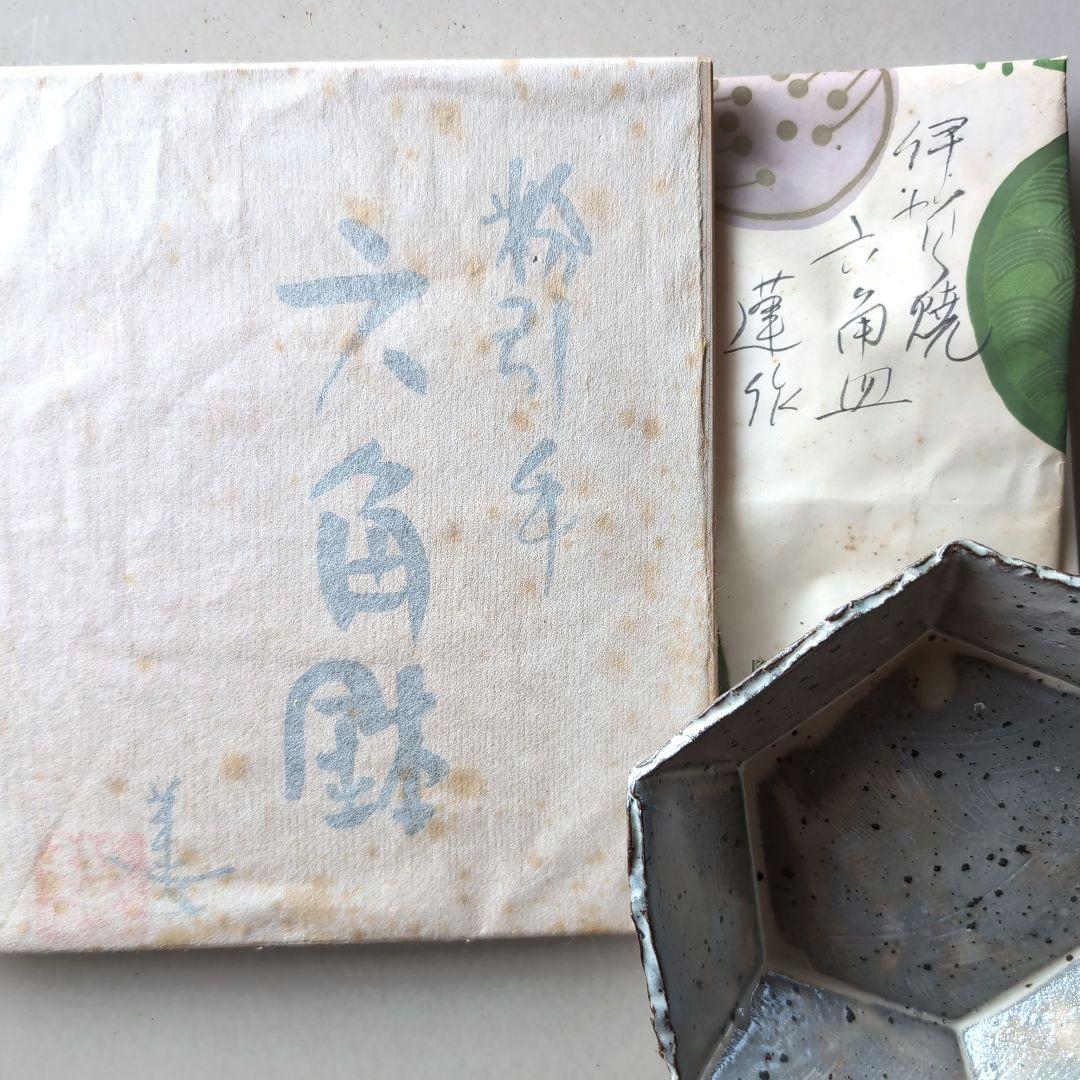 粉引手
六角鉢
蓮
伊賀焼
六角皿
蓮作